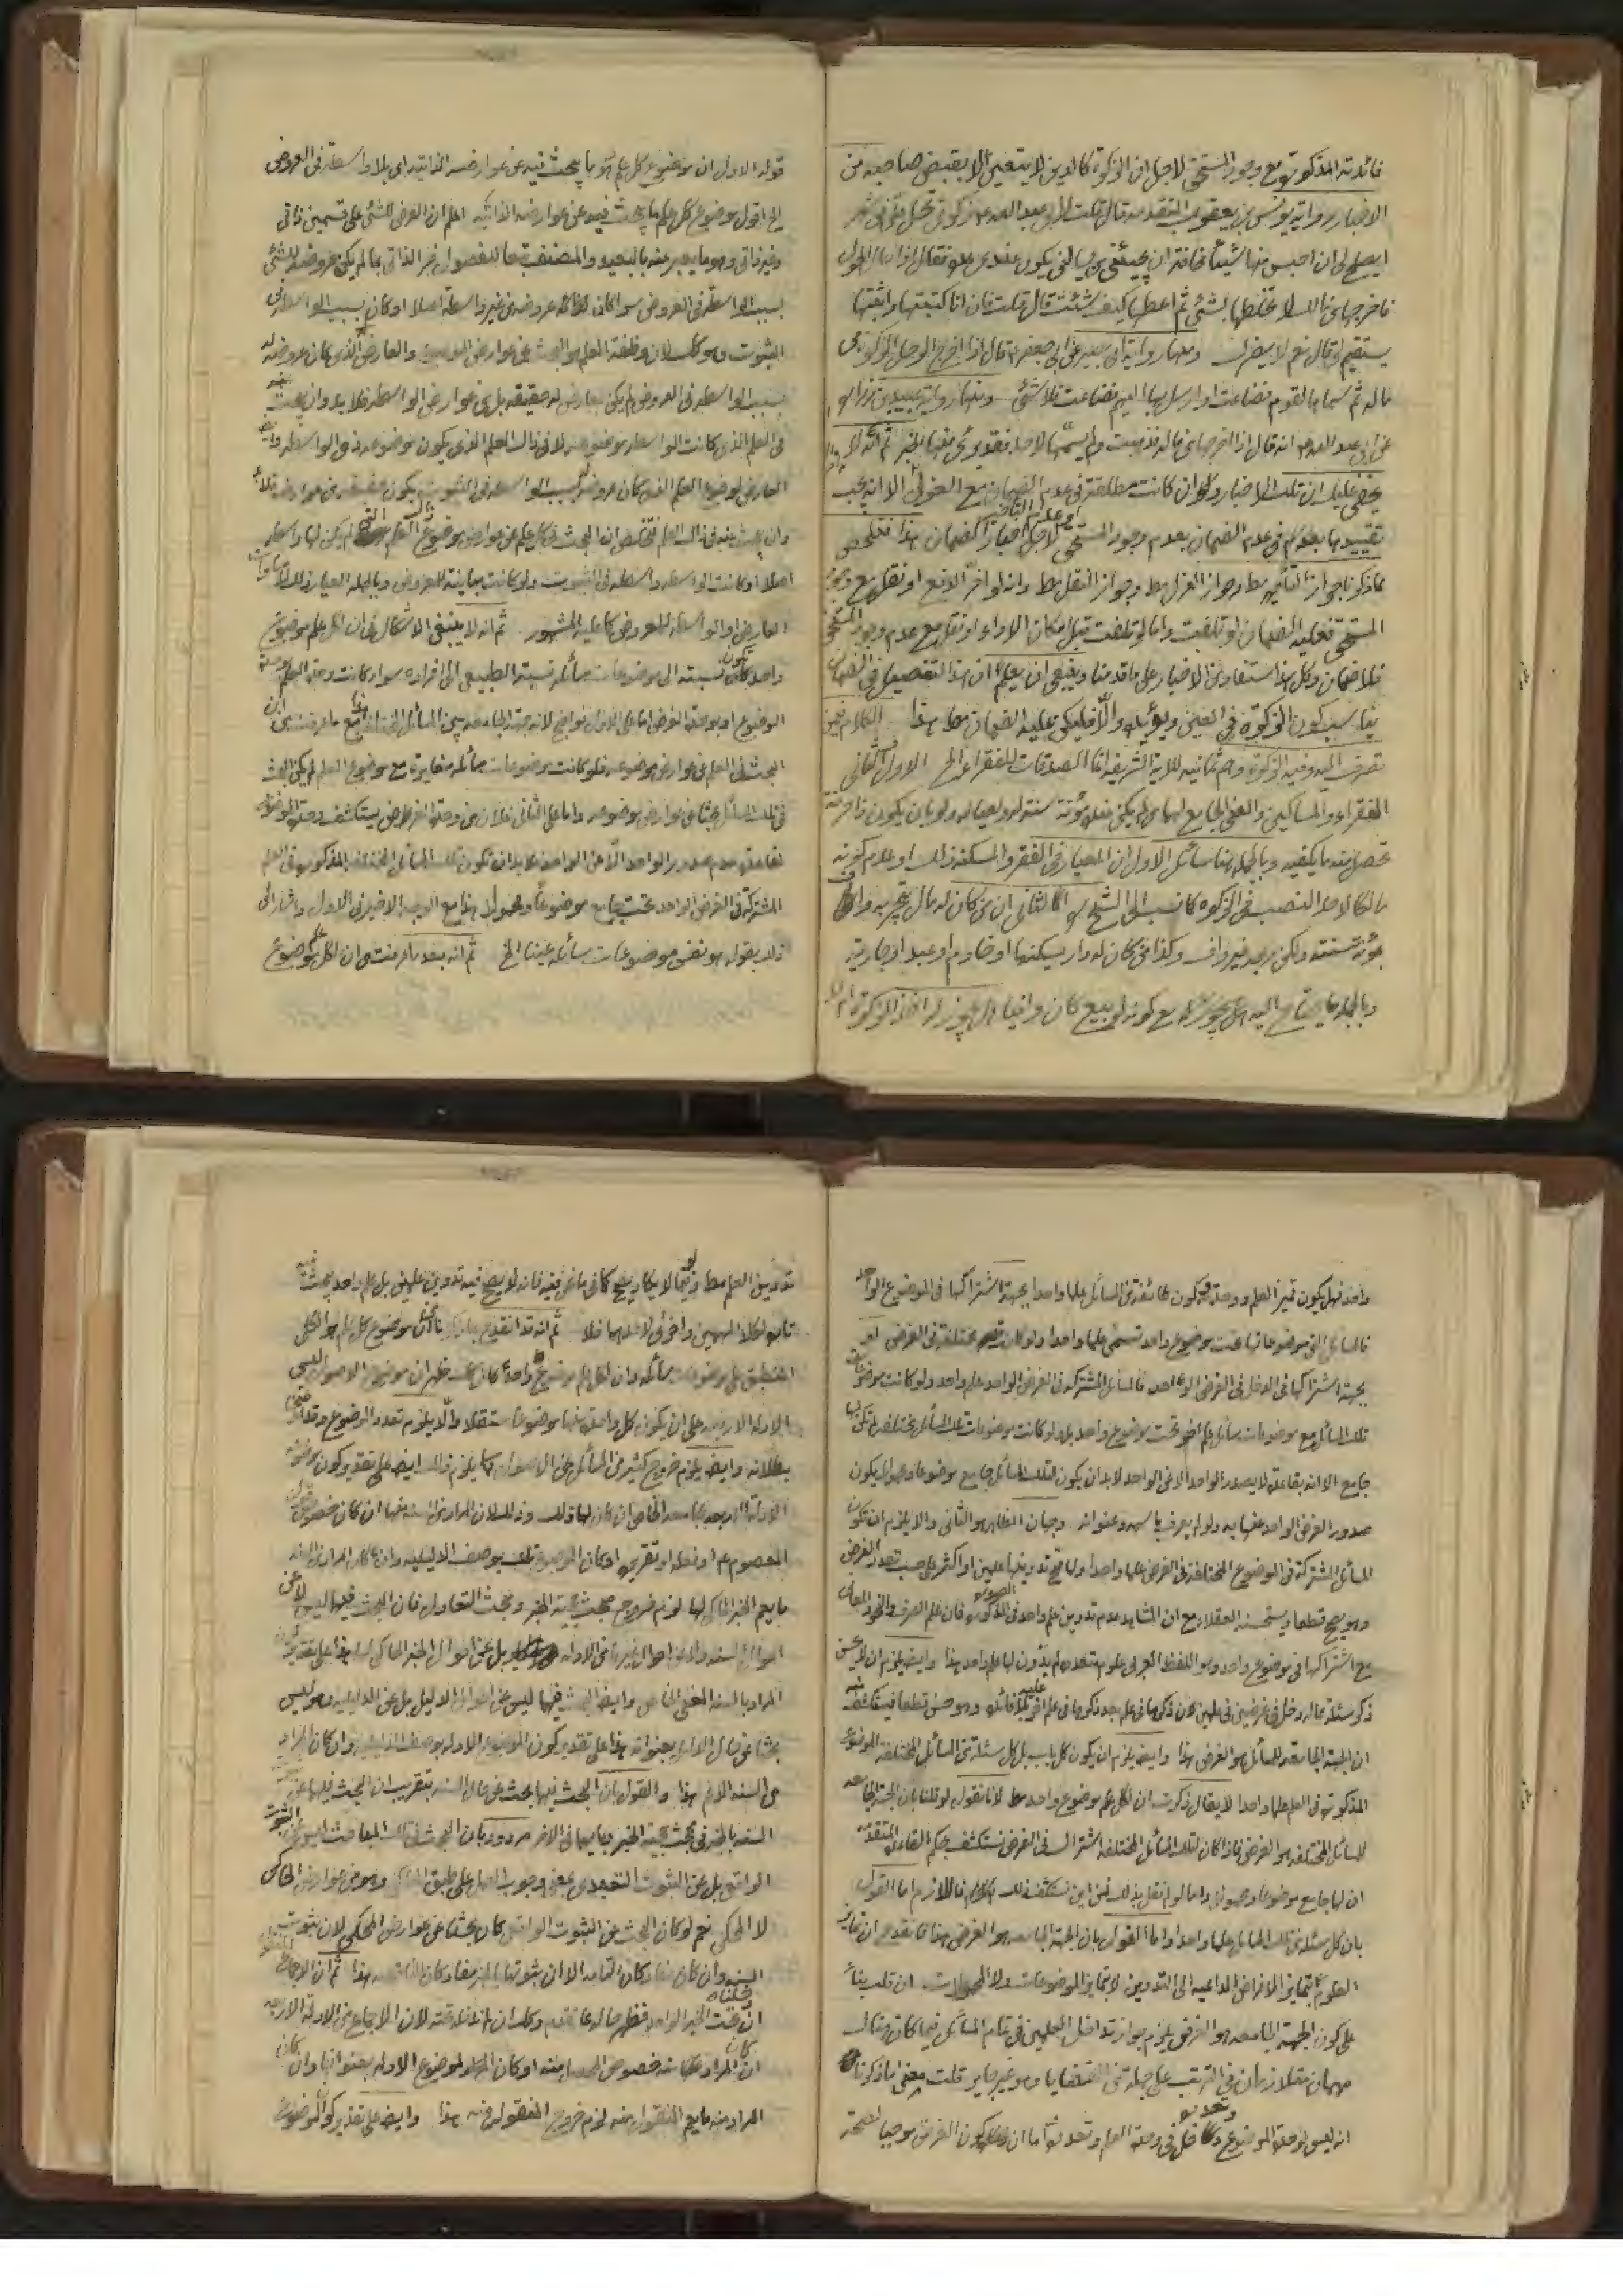 فائدته المذكورة مع وجود المستحق لاجل ان الزكوة كالدين لا يتعين الا بقبض صاحبه من
الاخبار رواية يونس بن يعقوب المتقدمه قال قلت لابي عبد الله ع زكوتي تحل علي في شهر
ايصلح لي ان احبس منها شيئا مخافة ان يجيئني من يسالني يكون عندي عدة فقال اذا حال الحول
فاخرجها من مالك لا تخلطها بشئ ثم اعطها كيف شئت قال قلت فان انا كتبتها واثبتها
يستقيم لي قال نعم لا يضرك ومنها رواية ابي بصير عن ابي جعفر ع قال اذا اخرج الرجل الزكوة من
ماله ثم سماها لقوم فضاعت او ارسل بها اليهم فضاعت فلا شئ ومنها رواية عبيد بن زراره
عن ابي عبد الله ع انه قال اذا اخرجها من ماله فذهبت ولم يسمها لاحد فقد برئ منها الخبر ثم انه لا
يخفى عليك ان تلك الاخبار وان كانت مطلقة في عدم الضمان مع العزل الا انه يجب
تقييدها بعدم وجود المستحق لاجل اخبار الضمان هذا فتلخص
مما ذكرنا جواز التأخير مط وجواز العزل مط وجواز النقل مط وانه لو اخر الدفع او نقل مع وجود
المستحق فعليه الضمان لو تلفت واما لو تلفت قبل امكان الاداء او نقل مع عدم وجود المستحق
فلا ضمان وكل هذا مستفاد من الاخبار على ما قدمنا وينبغي ان يعلم ان هذا التفصيل في الضمان
يناسب كون الزكوة في العين ويؤيده والا فليكن عليه الضمان مط هذا الكلام فيمن
تصرف اليه وفيه الزكوة وهم ثمانية للاية الشريفة انما الصدقات للفقراء الخ الاول والثاني
الفقراء والمساكين والمعنى الجامع لهما من لم يكن عنده مؤنة سنة له ولعياله ولو بان يكون ذا حرفة
تحصل منه ما يكفيه وبالجملة هنا مسائل الاول ان المعيار في الفقر والمسكنة ذلك او عدم كونه
مالكا لاحد النصب في الزكوة كما نسب الى الشيخ الثاني ان من كان له مال يتجر به
بمؤنة سنته ولكن ربحه غير واف وكذا من كان له دار يسكنها او خادم او عبد او جارية
وبالجملة ما يحتاج اليه هل يجوز له مع كونه لو بيع كان وافيا هل يجوز له اخذ الزكوة ام لا
قوله الاول ان موضوع كل علم هو ما يبحث فيه عن عوارضه الذاتية اي بلا واسطة في العروض
الخ اقول موضوع كل علم ما يبحث فيه عن عوارضه الذاتيه اعلم ان العرض للشئ على قسمين ذاتي
وغير ذاتي وهو ما يعبر عنه بالبعيد والمصنف تبعا للفصول فسر الذاتي بما لم يكن عروضه للشئ
بسبب الواسطة في العروض سواء كان عروضه من غير واسطة اصلا او كان بسبب الواسطة في
الثبوت وهو كك لان وظيفة العلم هو البحث عن عوارض الموضوع والعارض الذي كان عروضه له
بسبب الواسطه في العروض لم يكن بعارض له حقيقه بل من عوارض الواسطه فلا بد وان يبحث عنه
في العلم الذي كانت الواسطه موضوعه لا في ذاك العلم الذي يكون موضوعه ذي الواسطه وايضا
العارض لموضوع العلم الذي كان عروضه بسبب الواسطه في الثبوت يكون حقيقه من عوارضه
وان يبحث عنه في ذاك العلم فتلخص ان البحث في كل علم عن عوارض موضوع ذاك العلم التي لم يكن لها واسطه
اصلا او كانت الواسطه واسطه في الثبوت ولو كانت مباينة للمعروض وبالجمله العيار ذلك
العارض او الواسطه للمعروض كما عليه المشهور ثم انه لا ينبغي الاشكال في ان لكل علم موضوع
واحد تكون نسبته الى موضوعات مسائله نسبة الطبيعي الى افراده سواء كانت وحدة العلم بوحدة
الموضوع او بوحدة الغرض اما على الاول فواضح لانه جهة الجامعه بين المسائل المختلفة مع ما عرفت من ان
البحث في العلم عن عوارض موضوعه فلو كانت موضوعات مسائله مغايرة مع موضوع العلم لم يكن البحث
في تلك المسائل بحثا عن عوارض موضوعه واما على الثاني فلان من وحدة الغرض يستكشف وحدة الموضوع
لقاعدة عدم صدور الواحد الا عن الواحد فلا بد ان تكون تلك المسائل المختلفة المذكورة في العلم
المشتركة في الغرض الواحد تحت جامع موضوعا ومحمولا هذا مع الوجه الاخير في الاول واشار الى
ذلك بقوله هو نفس موضوعات مسائله عينا الخ ثم انه بعد ما عرفت من ان لكل علم موضوع
واحد فهل يكون تميز العلم ووحدته وكون طائفة من المسائل علما واحدا بجهة اشتراكها في الموضوع الواحد
فالمسائل التي موضوعاتها تحت موضوع واحد تسمى علما واحدا ولو كانت مختلفة في الغرض او
بجهة اشتراكها في الدخل في الغرض الواحد فالمسائل المشتركة في الغرض الواحد علم واحد ولو كانت موضوعات
تلك المسائل مع موضوعات مسائل علم اخر تحت موضوع واحد بل ولو كانت موضوعات تلك المسائل مختلفة لم تكن لها
جامع الا انه بقاعدة لا يصدر الواحد الا عن الواحد لا بد ان يكون لتلك المسائل جامع موضوعا ومحمولا يكون
صدور الغرض الواحد عنها به ولو لم يعرف باسمه وعنوانه وجهان الظاهر هو الثاني والا يلزم ان تكون
المسائل المشتركة في الموضوع المختلفة في الغرض علما واحدا ولما صح تدوينها علمين او اكثر على حسب تعدد الغرض
وهو يصح قطعا ويستحسنه العقلاء مع ان المشاهد عدم تدوين علم واحد في الصورة المذكورة فان علم الصرف والنحو والمعاني
مع اشتراكها في موضوع واحد وهو اللفظ العربي علوم متعدده لم يدون لها علم واحد هذا وايضا يلزم ان لا يحسن
ذكر مسئلة مما له دخل في غرضين في علمين لان ذكرها في علم بعد ذكرها في علم اخر بلا فائدة وهو حسن قطعا فيستكشف منه
ان الجهة الجامعه للمسائل هو الغرض هذا وايضا يلزم ان يكون كل باب بل كل مسئلة من المسائل المختلفة الموضوع
المذكورة في العلم علما واحدا لا يقال ذكرت ان لكل علم موضوع واحد مط لانا نقول لو قلنا بان الجهة الجامعه
للمسائل المختلفه هو الغرض فاذا كان لتلك المسائل المختلفة اشتراك في الغرض نستكشف بحكم القاعدة المتقدمة
ان لها جامع موضوعا ومحمولا واما لو لم نقل بذلك فمن اين نستكشف ذلك فاللازم اما القول
بان كل مسئلة من تلك المسائل علما واحدا واما القول بان الجهة الجامعه هو الغرض هذا فانقدح ان تمايز
العلوم بتمايز الاغراض الداعيه الى التدوين لا بتمايز الموضوعات ولا المحمولات ان قلت بناء
على كون الجهة الجامعه هو الغرض يلزم جواز تداخل العلمين في تمام المسائل فيما كان هناك
مهمان متلازمان في الترتب على جملة من القضايا وهو غير جايز قلت معنى ما ذكرنا
انه ليس لوحدة الموضوع وتعدده دخل في وحدة العلم وتعدده اما ان يكون الغرض موجبا لصحة
تدوين العلم مط وفيما لا يكاد يصح كما في ما نحن فيه فانه لا يصح فيه تدوين علمين بل علم واحد يبحث فيه
تارة لكلا المهمين واخرى لاحدهما فلا ثم انه قد انقدح بما ذكرنا ان موضوع كل علم هو الكلي
المنطبق على موضوعات مسائله وان لكل علم موضوع واحد كان كك ظهر ان موضوع الاصول ليس
الادلة الاربعه على ان يكون كل واحد منها موضوعا مستقلا والا يلزم تعدد الموضوع وقد عرفت
بطلانه وايضا يلزم خروج كثير من المسائل عن الاصول كما يلزم ذلك ايضا على تقدير كون موضوعه
الادلة الاربعه بجامعه الخاص ان كان لها ذلك وذلك لان المراد من السنه منها ان كان خصوص قول
المعصوم ع او فعله او تقريره او كان الموضوع تلك بوصف الدليليه وان كان المراد من السنه
ما يعم الخبر الحاكي لها لزم خروج مبحث حجية الخبر ومبحث التعادل فان البحث فيها ليس لا عن
احوال السنه ولا عن احوال غيرها من الادله بل عن احوال الخبر الحاكي لها هذا على تقدير كون
المراد بالسنه المعنى الخاص وايضا البحث فيها ليس عن احوال الدليل بل عن الدليليه وهو ليس
بحثا عن حال الادله بعنوانه هذا على تقدير كون الموضوع الادله بوصف الدليليه وان كان المراد
من السنه الاعم هذا والقول بان البحث فيها بحث عن حال السنه بتقريب ان البحث فيها عن ثبوت
السنه بالخبر في مبحث حجية الخبر وبايهما في الاخر مردود بان البحث في تلك المباحث ليس عن الثبوت
الواقعي بل عن الثبوت التعبدي بمعنى وجوب العمل على طبق الحاكي وهو من عوارض الحاكي
لا المحكي نعم لو كان البحث عن الثبوت الواقعي كان بحثا عن عوارض المحكي لان ثبوت
السنه وان كان مفاد كان التامه الا ان ثبوتها بالخبر مفاد كان الناقصه هذا ثم ان الاجماع المنقول
ان قلنا تحت الخبر الواحد فظهر حاله مما تقدم وكك ان لم ندخله تحته لان الاجماع من الادلة الاربعه
ان كان المراد منه خصوص المحصل منه او كان المراد لموضوع الادله بعنوانها وان كان
المراد منه ما يعم المنقول منه لزم خروج المنقول منه هذا وايضا على تقدير كون الموضوع